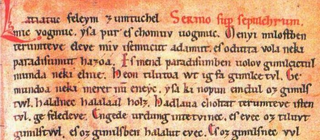 Latiatuc feleym zumtuchel Sermo sup sepulchrum.
mic vogmuc. ysa pur es chomuv uogmuc. Menyi milostben
terumteve eleve miv isemucut adamut. es odutta vola neki
paradisumut hazoa. Es mend paradisumben uolov gimilcictul
munda neki elnie. Heon tilutoa wt ig fa gimilce tvl. Ge
mundoa neki meret nu eneyc. ysa ki nopun emdul oz gimils
twl. halalnec halalaal holz. Hadlaua choltat terumteve isten
tvl. ge feledeve. Engede urdung intetvinec. es evec oz tiluvt
gimilstvl. es oz gimilsben halalut evec. Es oz